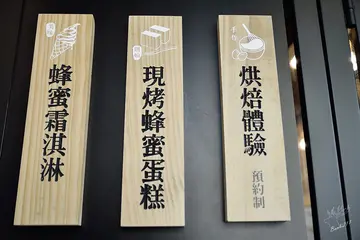 蜂蜜霜淇淋
現烤蜂蜜蛋糕
手作
烘焙體驗
預約制